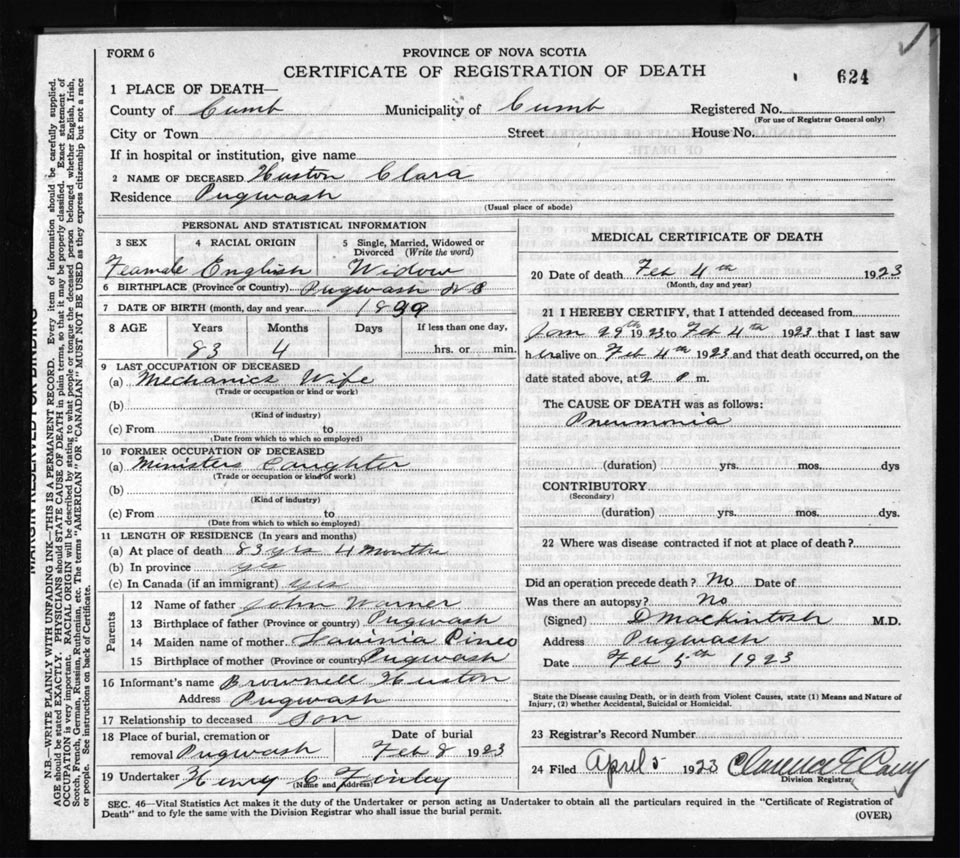 FORM 6
PROVINCE OF NOVA SCOTIA
CERTIFICATE OF REGISTRATION OF DEATH
624
1 PLACE OF DEATH—
County of Cumb Municipality of Cumb Registered No.
(For use of Registrar General only)
City or Town Street House No.
If in hospital or institution, give name
2 NAME OF DECEASED Huston Clara
Residence Pugwash
(Usual place of abode)
PERSONAL AND STATISTICAL INFORMATION
3 SEX 4 RACIAL ORIGIN 5 Single, Married, Widowed or Divorced (Write the word)
Feamale English Widow
6 BIRTHPLACE (Province or Country) Pugwash NS
7 DATE OF BIRTH (month, day and year)
8 AGE Years Months Days If less than one day,
83 4 hrs. or min.
9 LAST OCCUPATION OF DECEASED
(a) Mechanics Wife
(Trade or occupation or kind or work)
(b)
(Kind of industry)
(c) From to
(Date from which to which so employed)
10 FORMER OCCUPATION OF DECEASED
(a) Ministers Daughter
(Trade or occupation or kind of work)
(b)
(Kind of industry)
(c) From to
(Date from which to which so employed)
11 LENGTH OF RESIDENCE (In years and months)
(a) At place of death 83 yrs 4 months
(b) In province yes
(c) In Canada (if an immigrant) yes
Parents
12 Name of father John Warner
13 Birthplace of father (Province or country) Pugwash
14 Maiden name of mother Lavinia Pineo
15 Birthplace of mother (Province or country Pugwash
16 Informant's name Brownell Huston
Address Pugwash
17 Relationship to deceased Son
18 Place of burial, cremation or Date of burial
removal Pugwash Feb 8 1923
19 Undertaker Henry C Finley
(Name and Address)
MEDICAL CERTIFICATE OF DEATH
20 Date of death Feb 4th 1923
(Month, day and year)
21 I HEREBY CERTIFY, that I attended deceased from
Jan 29th 1923 to Feb 4th 1923 that I last saw
her alive on Feb 4th 1923 and that death occurred, on the
date stated above, at 9 P m.
The CAUSE OF DEATH was as follows:
Pneumonia
(duration) yrs. mos. dys
CONTRIBUTORY
(Secondary)
(duration) yrs. mos. dys.
22 Where was disease contracted if not at place of death?
Did an operation precede death? No Date of
Was there an autopsy? No
(Signed) D Mackintosh M.D.
Address Pugwash
Date Feb 5th 1923
State the Disease causing Death, or in death from Violent Causes, state (1) Means and Nature of
Injury, (2) whether Accidental, Suicidal or Homicidal.
23 Registrar's Record Number
24 Filed April 5 1923 Clarence E
Division Registrar
SEC. 46—Vital Statistics Act makes it the duty of the Undertaker or person acting as Undertaker to obtain all the particulars required in the "Certificate of Registration of
Death" and to fyle the same with the Division Registrar who shall issue the burial permit.
(OVER)
MARGIN RESERVED FOR BINDING
N.B.—WRITE PLAINLY WITH UNFADING INK—THIS IS A PERMANENT RECORD. Every item of information should be carefully supplied.
AGE should be stated EXACTLY. PHYSICIANS should STATE CAUSE OF DEATH in plain terms, so that it may be properly classified. Exact statement of
OCCUPATION is very important. RACIAL ORIGIN will be described by stating to what people or tongue the deceased person belonged whether English, Irish,
Scotch, French, German, Russian, Ruthenian, etc. The terms "AMERICAN" OR "CANADIAN" MUST NOT BE USED as they express citizenship but not a race
or people. See instructions on back of Certificate.